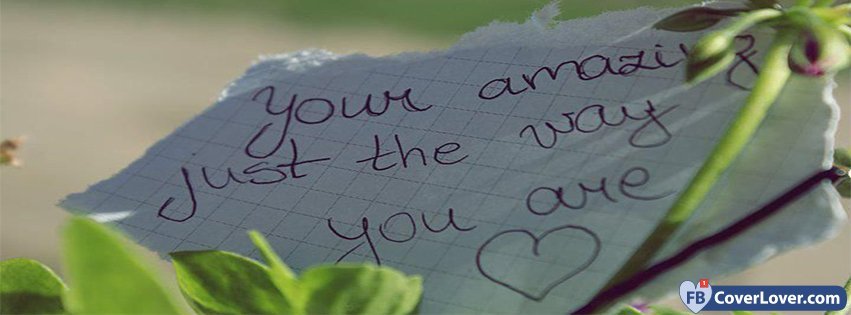 your amazing
just the way
you are
FB CoverLover.com